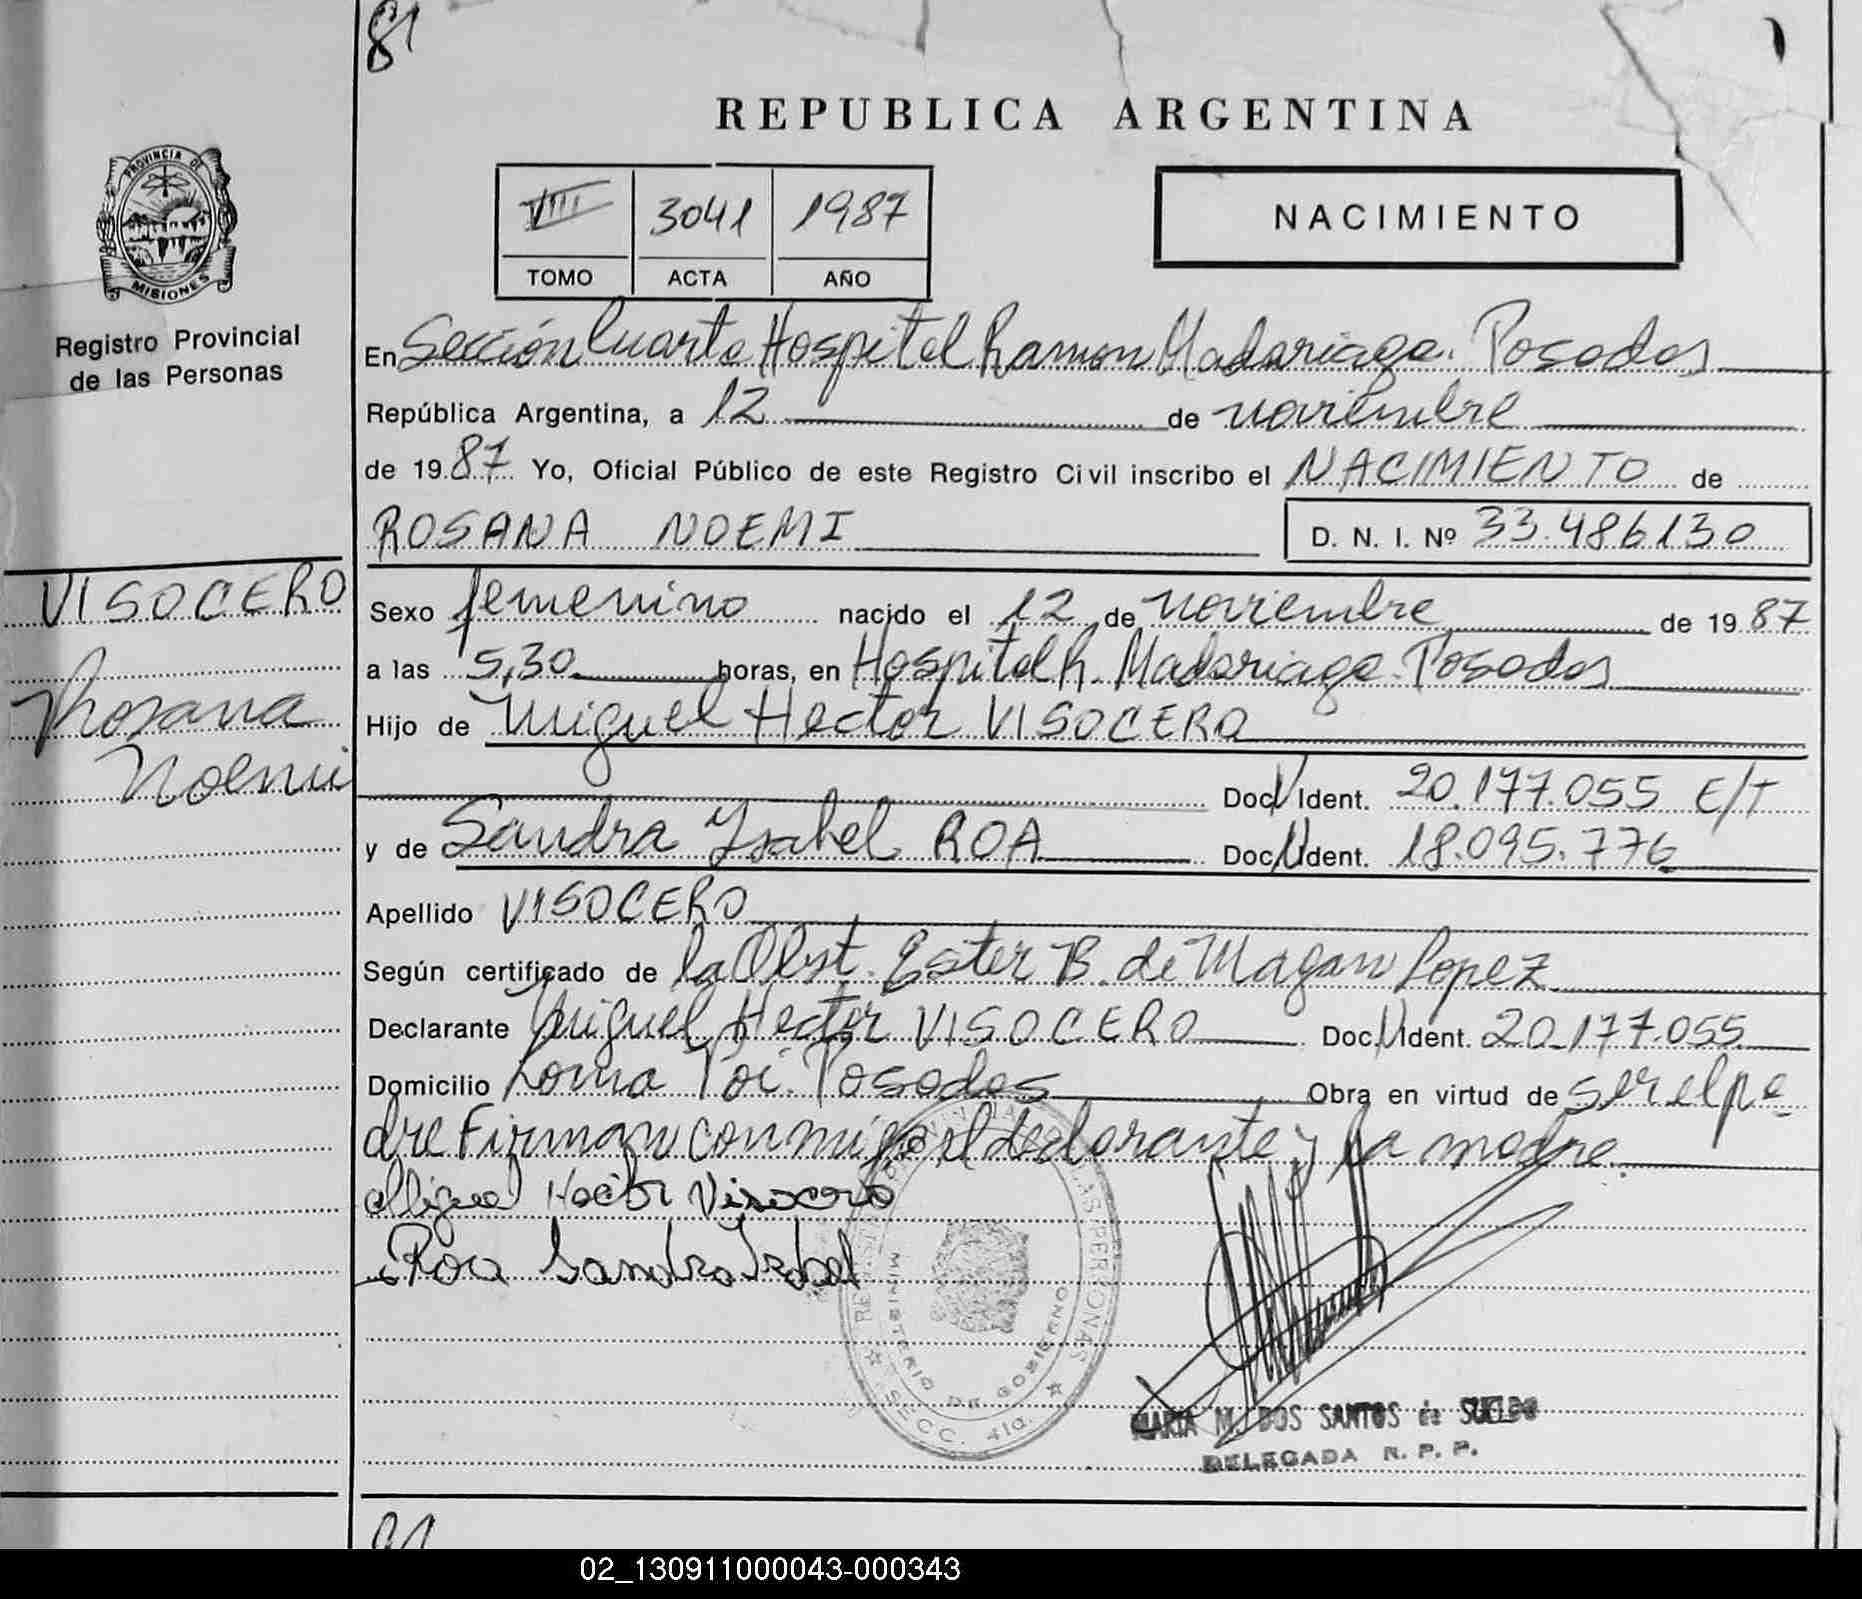 81
REPUBLICA ARGENTINA
PROVINCIA DE
MISIONES
Registro Provincial
de las Personas
VIII 3041 1987
TOMO ACTA AÑO
NACIMIENTO
En Sección Cuarta Hospital Ramon Madariaga. Posadas
República Argentina, a 12 de noviembre
de 1987 Yo, Oficial Público de este Registro Civil inscribo el NACIMIENTO de
ROSANA NOEMI
D. N. I. Nº 33.486.130
VISOCERO
Rosana
Noemi
Sexo femenino nacido el 12 de noviembre de 1987
a las 5,30 horas, en Hospital R. Madariaga. Posadas
Hijo de Miguel Hector VISOCERO
Doc. Ident. 20.177.055 E/T
y de Sandra Ysabel ROA Doc. Ident. 18.095.776
Apellido VISOCERO
Según certificado de la Obst. Ester B. de Magan Lopez
Declarante Miguel Hector VISOCERO Doc. Ident. 20.177.055
Domicilio Loma Poi. Posadas Obra en virtud de ser el pa
dre Firman conmigo el declarante y la madre
Miguel Hector Visocero
Roa Sandra Izabel
REGISTRO PROVINCIAL DE LAS PERSONAS
MINISTERIO DE GOBIERNO
SECC. 4ta.
MARIA M. DOS SANTOS de SUELDO
DELEGADA R. P. P.
02_130911000043-000343